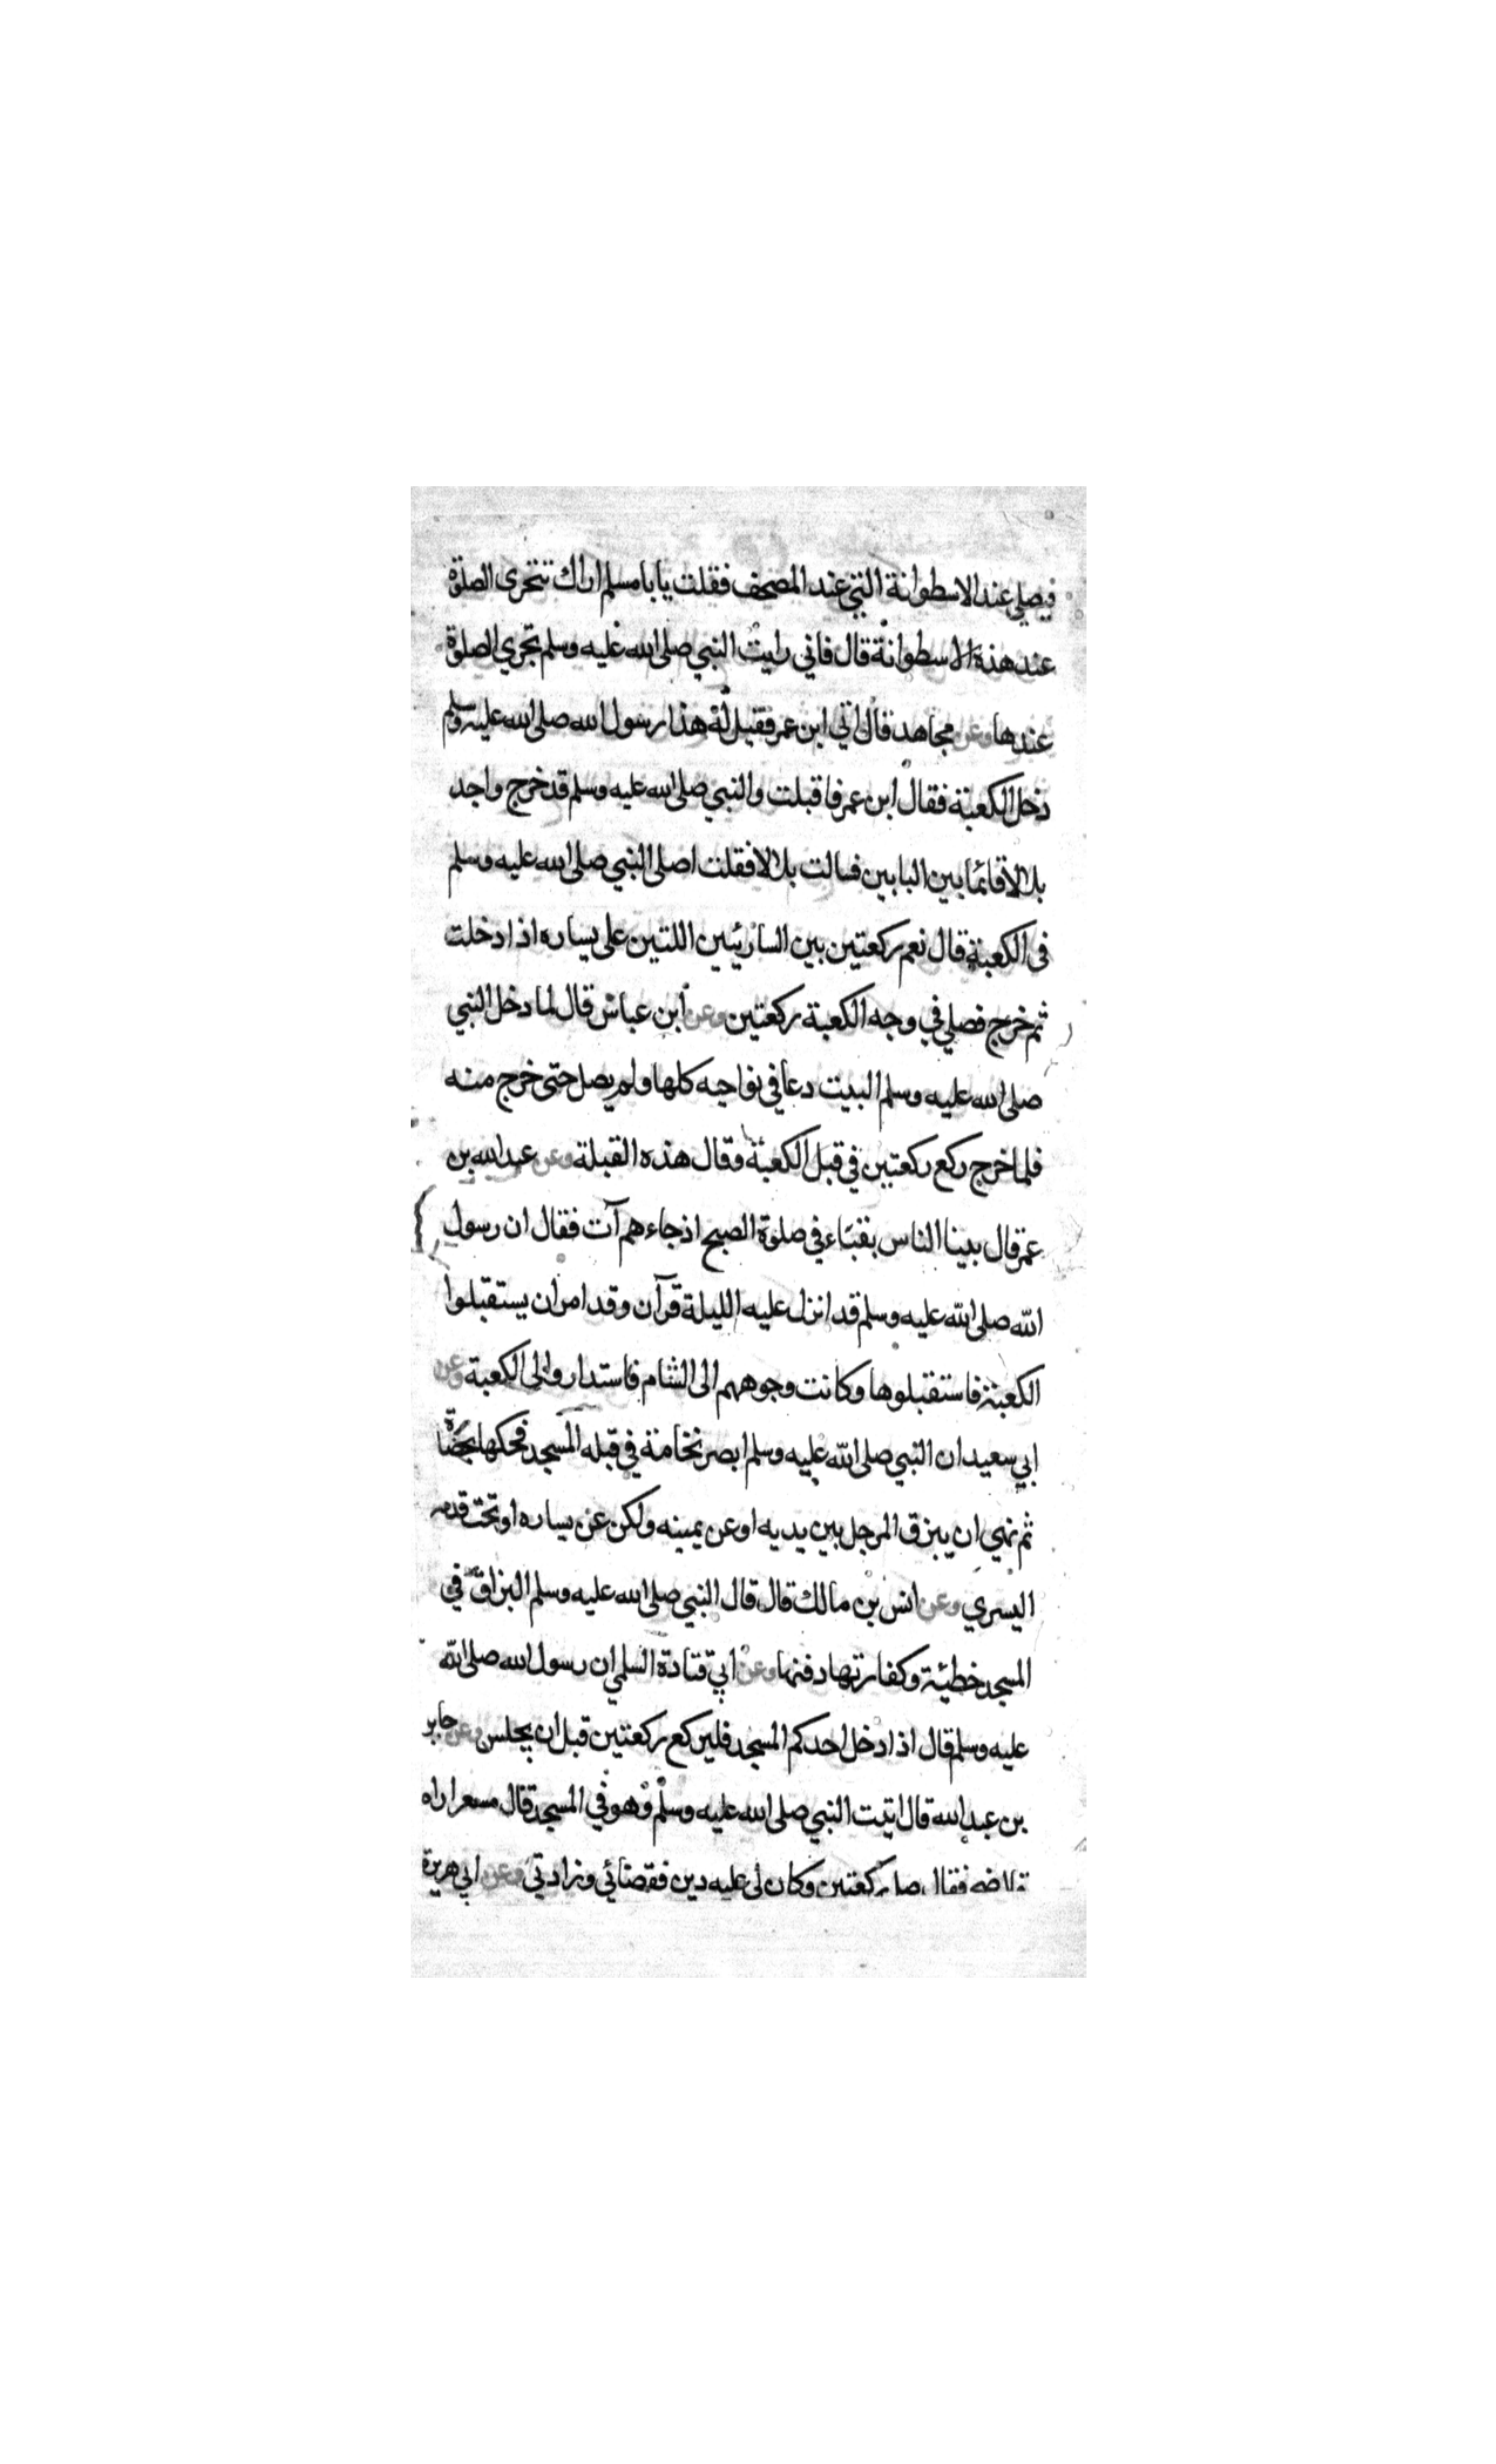 فيصلي عند الاسطوانة التي عند المصحف فقلت يابا مسلم اراك تتحرى الصلوة
عند هذة الاسطوانة قال فاني رايت النبي صلى الله عليه وسلم تحري الصلوة
عندها وعن مجاهد قال اتي ابن عمر فقيل له هذا رسول الله صلى الله عليه وسلم
دخل الكعبة فقال ابن عمر فاقبلت والنبي صلى الله عليه وسلم قد خرج واجد
بلالا قائما بين البابين فسالت بلالا فقلت اصلى النبي صلى الله عليه وسلم
فى الكعبة قال نعم ركعتين بين الساريتين اللتين على يساره اذا دخلت
ثم خرج فصلي في وجه الكعبة ركعتين وعن ابن عباس قال لما دخل النبي
صلى الله عليه وسلم البيت دعا في نواحيه كلها ولم يصل حتى خرج منه
فلما خرج ركع ركعتين في قبل الكعبة وقال هذه القبلة وعن عبد الله بن
عمر قال بينا الناس بقباء في صلوة الصبح اذ جاءهم آت فقال ان رسول
الله صلى الله عليه وسلم قد انزل عليه الليلة قرآن وقد امر ان يستقبلوا
الكعبة فاستقبلوها وكانت وجوههم الى الشام فاستداروا الى الكعبة وعن
ابي سعيد ان النبي صلى الله عليه وسلم ابصر نخامة في قبلة المسجد فحكها بحصاة
ثم نهي ان يبزق الرجل بين يديه او عن يمينه ولكن عن يساره او تحت قدمه
اليسري وعن انس بن مالك قال قال النبي صلى الله عليه وسلم البزاق في
المسجد خطيئة وكفارتها دفنها وعن ابي قتادة السلمي ان رسول الله صلى الله
عليه وسلم قال اذا دخل احدكم المسجد فليركع ركعتين قبل ان يجلس وعن جابر
بن عبد الله قال اتيت النبي صلى الله عليه وسلم وهو في المسجد قال مسعر اراه
فقال صل ركعتين وكان لي عليه دين فقضائي وزادني وعن ابي هريرة